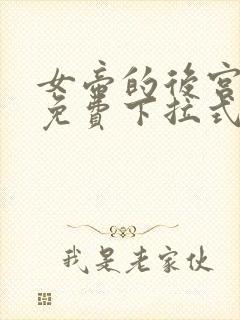 女帝的後宮
免費下拉式
我是老家伙